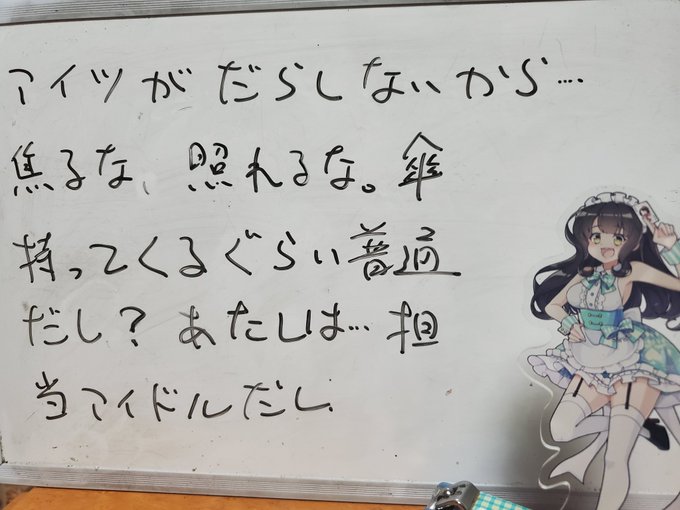 アイツがだらしないから…
焦るな、照れるな。傘
持ってくるぐらい普通
だし？あたしは…担
当アイドルだし